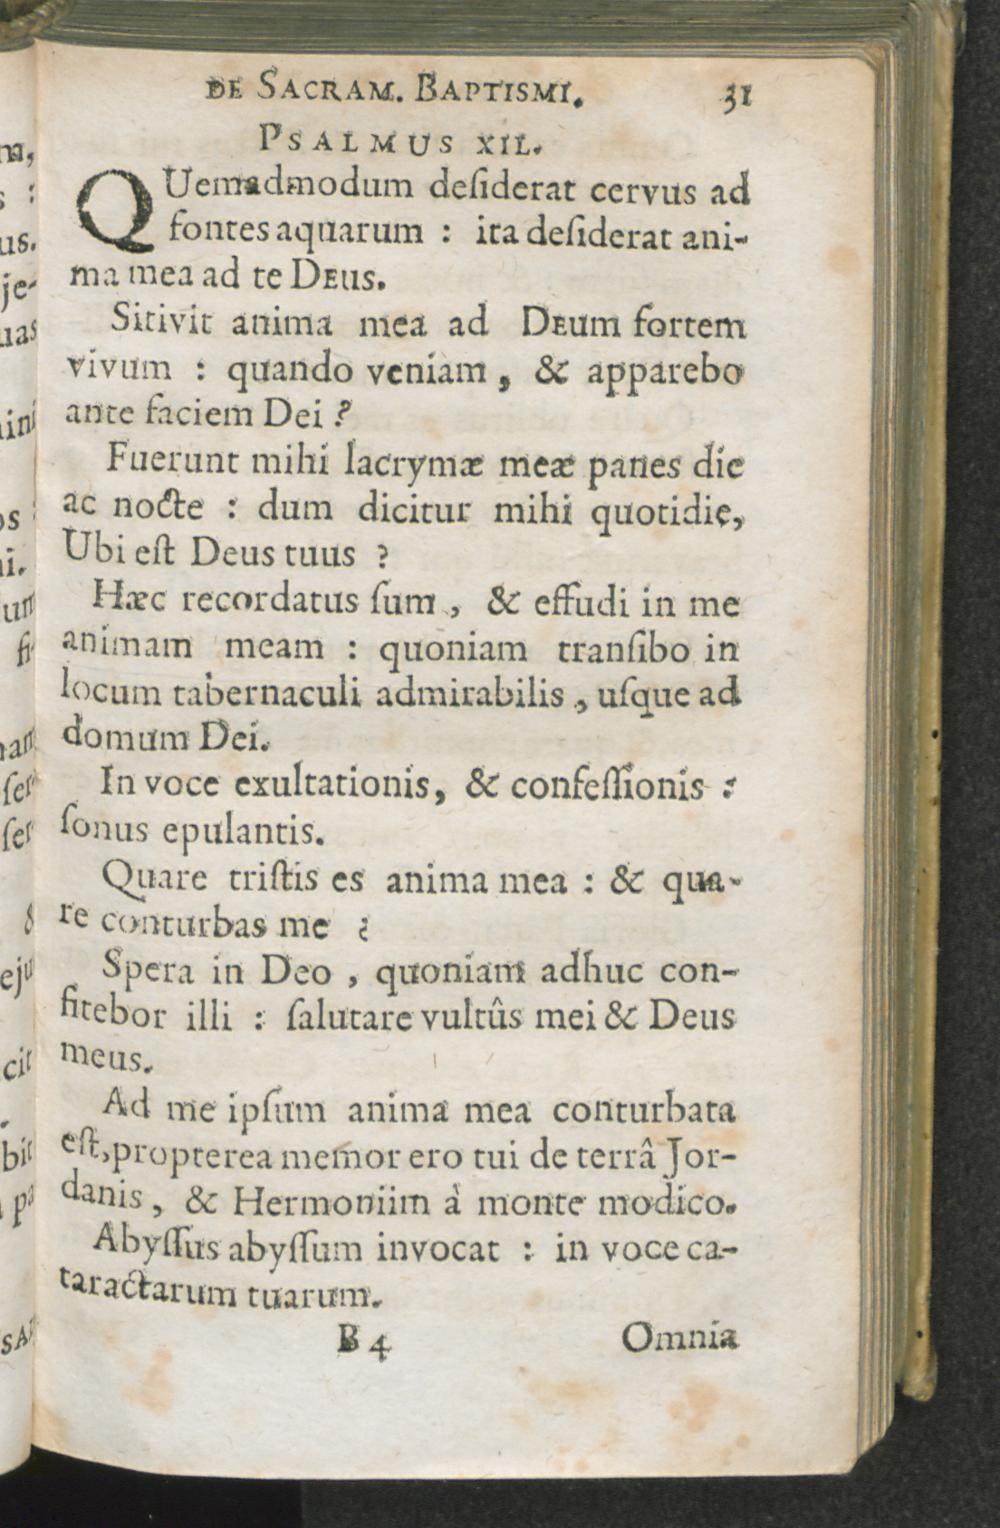 DE SACRAM. BAPTISMI. 31
PSALMUS XII.
QUemadmodum deſiderat cervus ad
fontes aquarum : ita deſiderat ani-
ma mea ad te DEus.
Sitivit anima mea ad DEum fortem
vivum : quando veniam , & apparebo
ante faciem Dei ?
Fuerunt mihi lacrymæ meæ panes die
ac nocte : dum dicitur mihi quotidie,
Ubi eſt Deus tuus ?
Hæc recordatus ſum , & effudi in me
animam meam : quoniam tranſibo in
locum tabernaculi admirabilis , uſque ad
domum Dei.
In voce exultationis, & confeſſionis :
ſonus epulantis.
Quare triſtis es anima mea : & qua-
re conturbas me ?
Spera in Deo , quoniam adhuc con-
fitebor illi : ſalutare vultûs mei & Deus
meus.
Ad me ipſum anima mea conturbata
eſt, propterea memor ero tui de terrâ Jor-
danis , & Hermoniim à monte modico.
Abyſſus abyſſum invocat : in voce ca-
taractarum tuarum.
B 4 Omnia